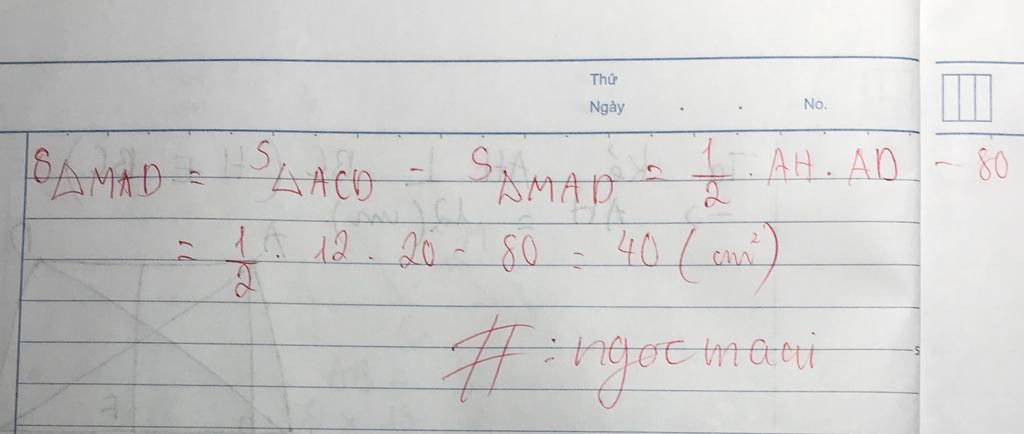 Thứ
Ngày . . No.
S△MAD = S△ACD - S△MAD = 1/2 . AH . AD - 80
= 1/2 . 12 . 20 - 80 = 40 (cm²)
#: ngocmaai
5